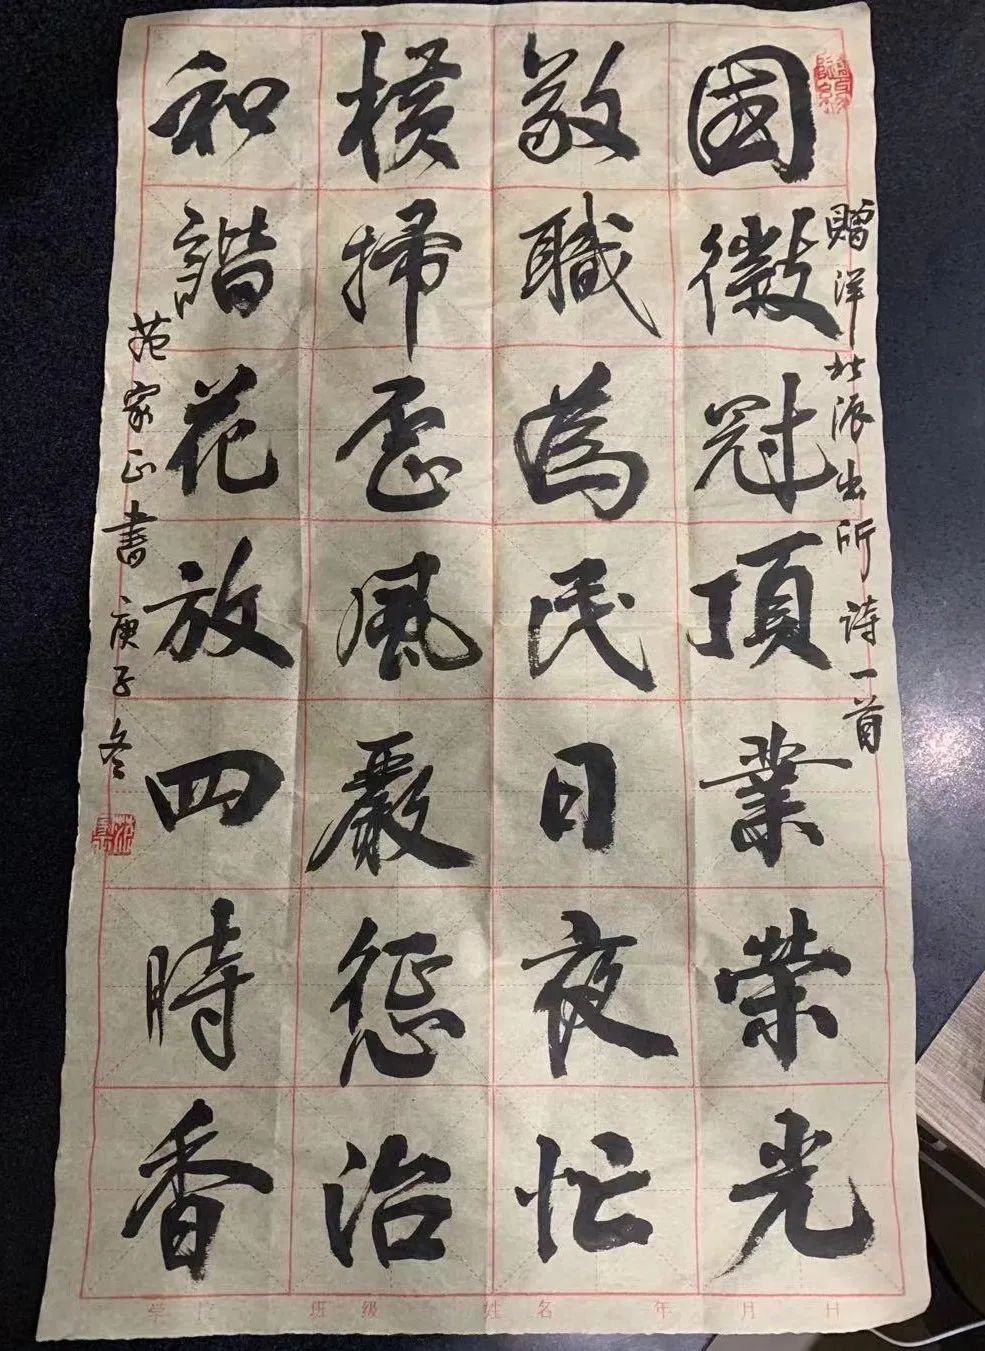 國徽冠頂業榮光
敬職為民日夜忙
橫掃歪風嚴懲治
和諧花放四時香
贈洋北派出所诗一首
范家正書 庚子冬
学 班 级 姓 名 年 月 日